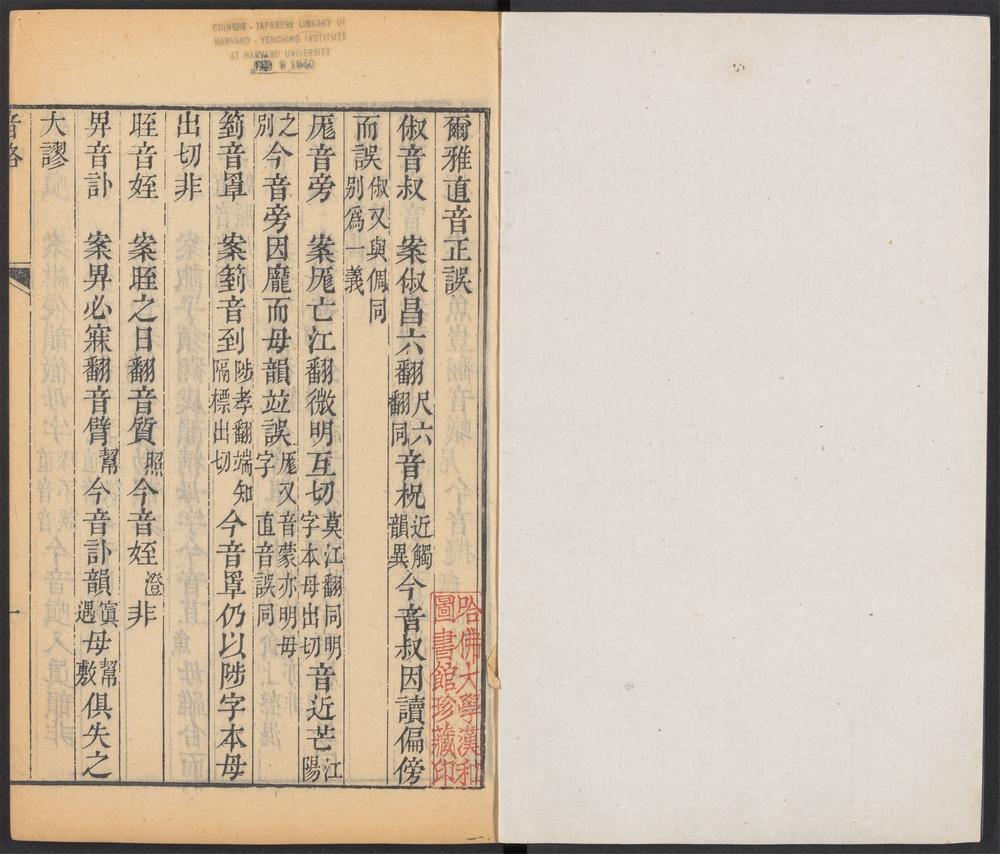 CHINESE - JAPANESE LIBRARY OF
HARVARD - YENCHING INSTITUTE
AT HARVARD UNIVERSITY
爾雅直音正誤
俶音叔　案俶昌六翻尺六翻同音柷近觸韻異今音叔因讀偏傍
而誤俶又與倜同別爲一義
厖音旁　案厖亡江翻微明互切莫江翻同明字本母出切音近芒江陽
之別今音旁因龐而母韻竝誤厖又音蒙亦明母字直音誤同
箌音罩　案箌音到陟孝翻端知隔標出切今音罩仍以陟字本母
出切非
眰音姪　案眰之日翻音質照今音姪澄非
畀音訃　案畀必寐翻音臂幫今音訃韻寘遇母幫敷俱失之
大謬
音略
一
哈佛大學漢和
圖書館珍藏印